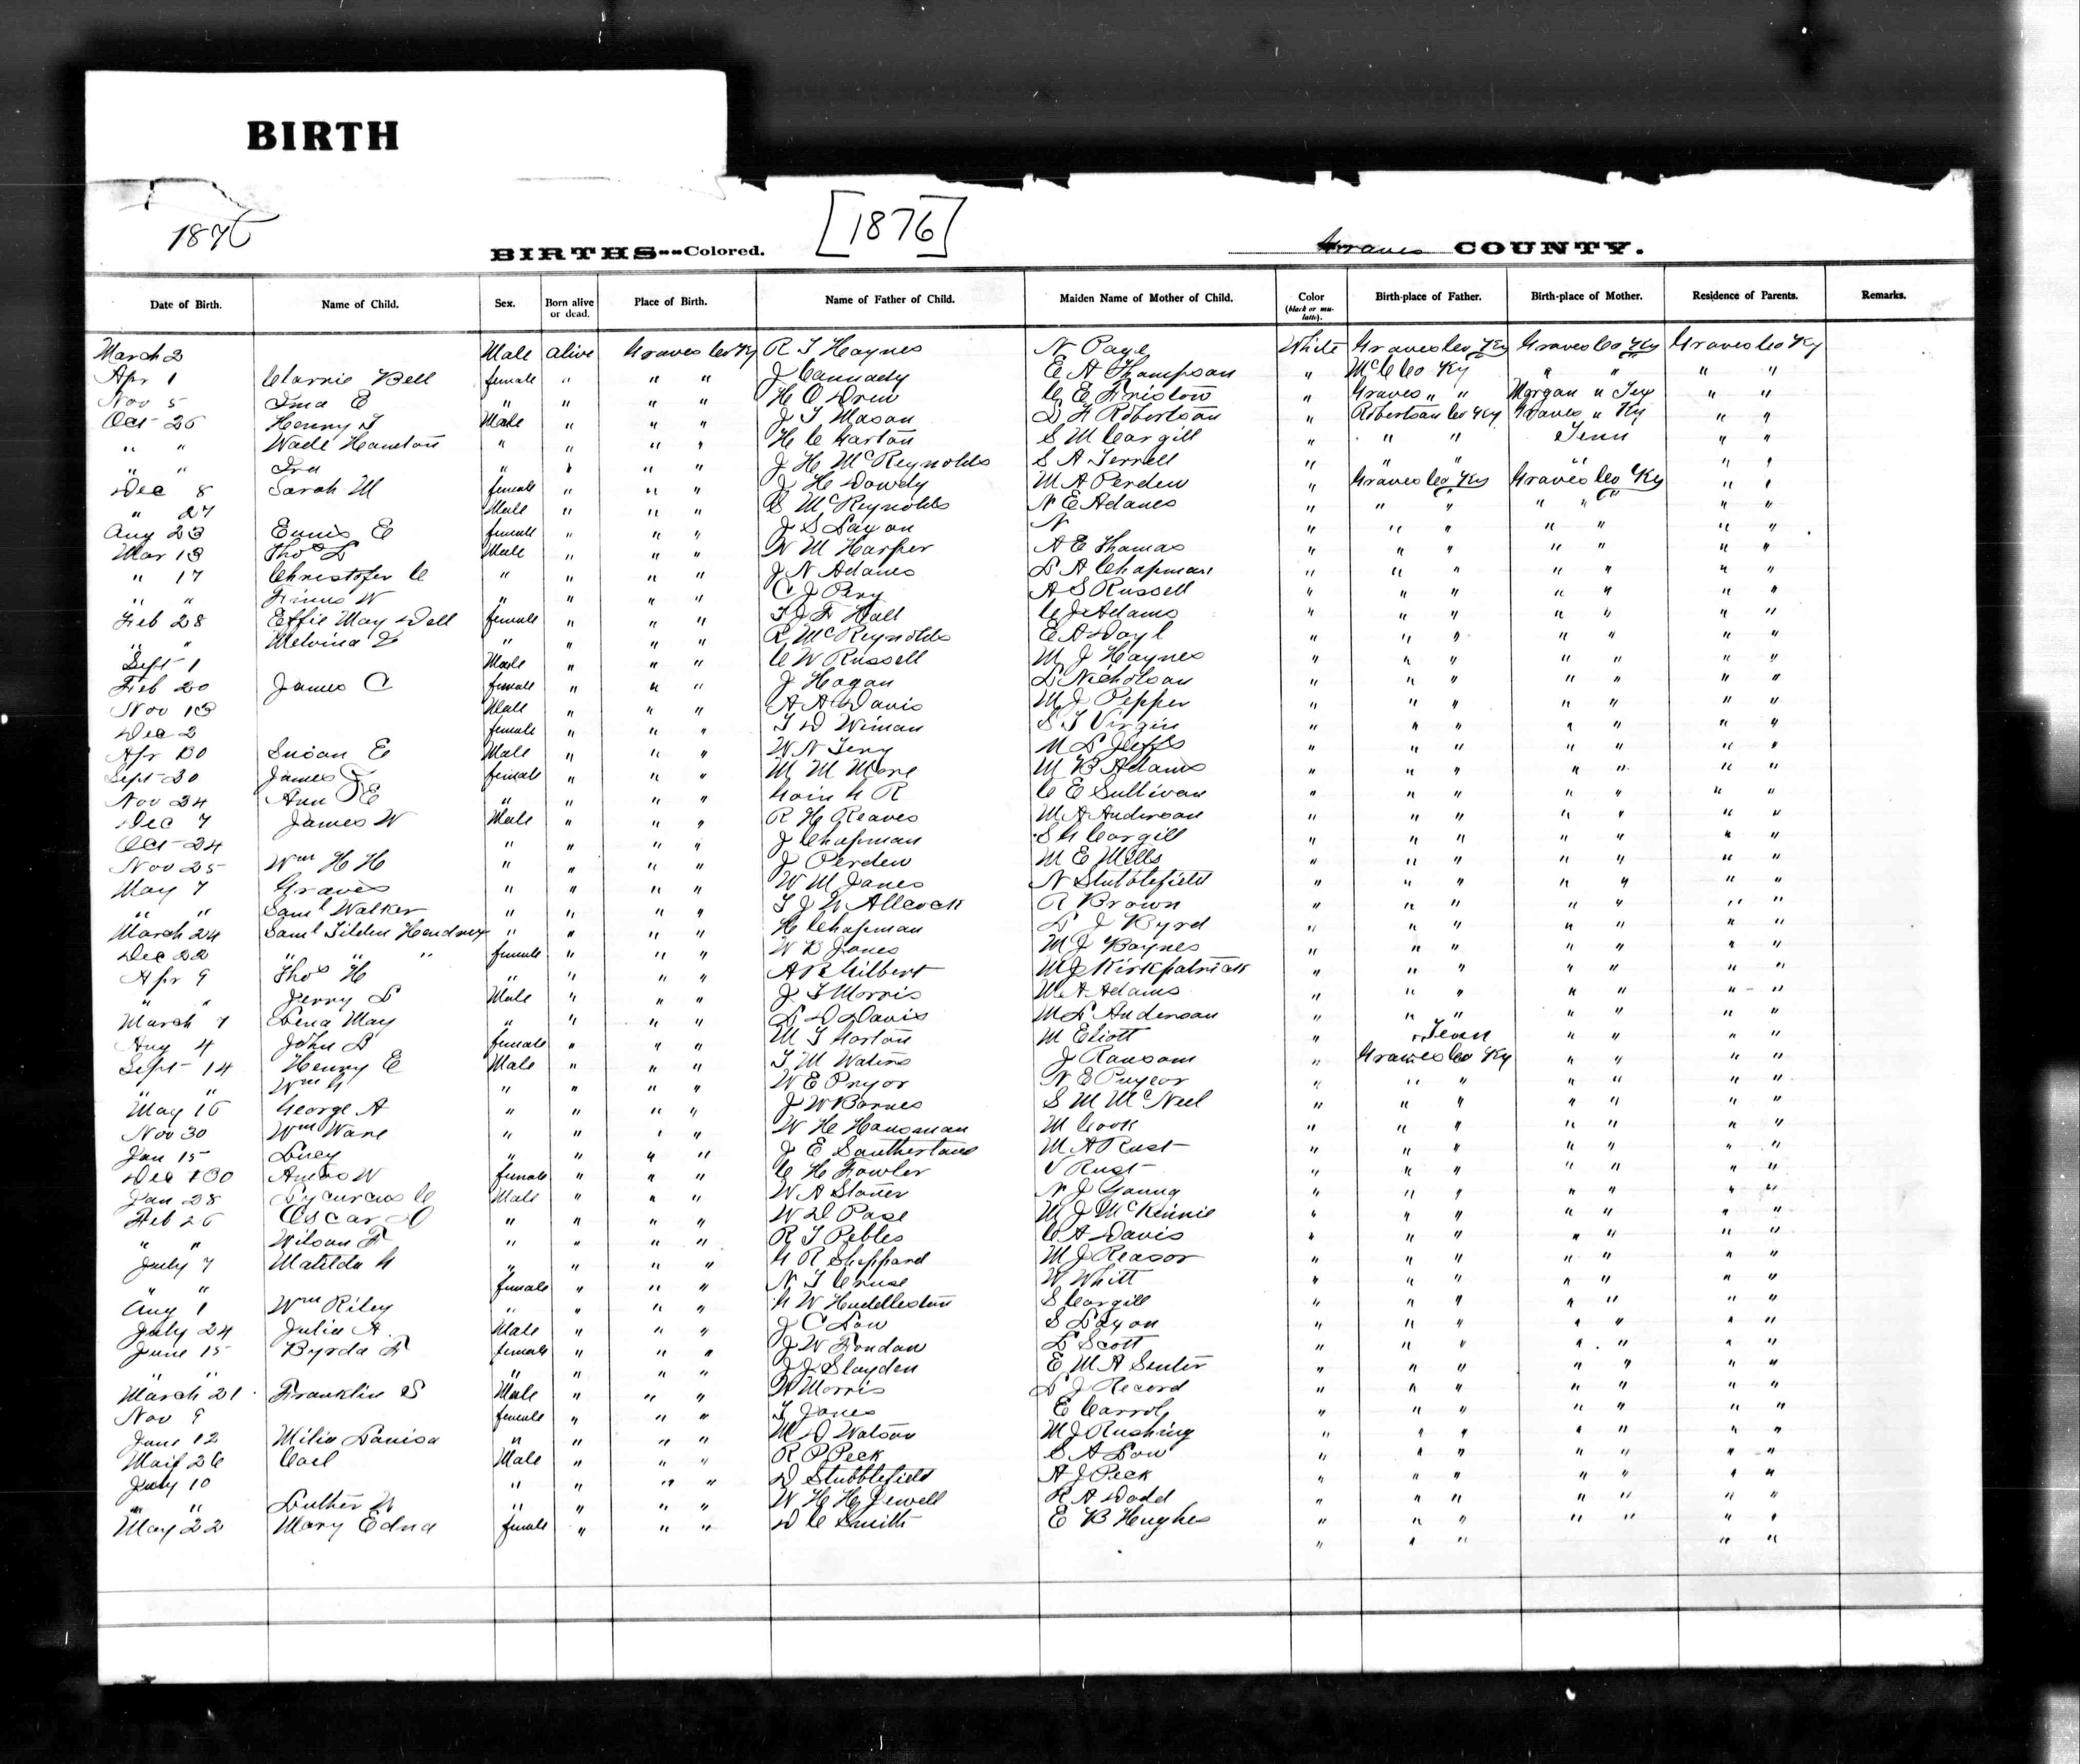 BIRTH
1876
[1876]
BIRTHS--Colored.
Graves COUNTY.
Date of Birth. Name of Child. Sex. Born alive or dead. Place of Birth. Name of Father of Child. Maiden Name of Mother of Child. Color (black or mulatto). Birth-place of Father. Birth-place of Mother. Residence of Parents. Remarks.
March 2 Male alive Graves Co Ky R T Haynes N Page White Graves Co Ky Graves Co Ky Graves Co Ky
Apr 1 Bell female " " " J Cannady E A Thompson " McC Co Ky " " " "
Nov 5 Ima E " " " " H O Drew C E " Graves " " Morgan " " "
Oct 26 Henry T Male " " " J T Mason L F Robertson " Robertson Co Ky Graves " Ky " "
" " Wade " " " " H C S M Cargill " " " Tenn " "
" " Ira " " " " J H McReynolds S A Terrell " " " " " "
Dec 8 Sarah M female " " " J H Dowdy M A Perdew " Graves Co Ky Graves Co Ky " "
" 27 Male " " " McReynolds N E Adams " " " " " " "
Aug 23 Eunis E female " " " J S Saxon N " " " " " " "
Mar 13 Thos L Male " " " W M Harper A E Thomas " " " " " " "
" 17 Christofer C " " " " J N Adams L A Chapman " " " " " " "
" " W " " " " C J Pery A S Russell " " " " " " "
Feb 28 Effie May Dell female " " " T J F Hall C J Adams " " " " " " "
" " Melvina " " " " R McReynolds E A " " " " " " "
Sept 1 Male " " " C W Russell M J Haynes " " " " " " "
Feb 20 James C female " " " J Hogan L Nicholson " " " " " " "
Nov 13 Male " " " A A Davis M J Pepper " " " " " " "
Dec 2 female " " " T D Wiman S T Virgin " " " " " " "
Apr 30 Susan E Male " " " W N M L " " " " " " "
Sept 20 James F female " " " M M More M B Adams " " " " " " "
Nov 24 Ann E " " " " G R C E Sullivan " " " " " " "
Dec 7 James W Male " " " R H Reaves M A Anderson " " " " " " "
Oct 24 " " " " J Chapman S G Cargill " " " " " " "
Nov 25 Wm H H " " " " J Perdew M E Mills " " " " " " "
May 7 Graves " " " " W M Janes N Stubblefield " " " " " " "
" " Saml Walker " " " " T J W Allcock R Brown " " " " " " "
March 24 Saml Tilden Hendrex " " " " H Chapman L J Byrd " " " " " " "
Dec 22 " " " female " " " W B Jones M J Baynes " " " " " " "
Apr 9 Thos H " " " " A R Gilbert M J Kirkpatrick " " " " " " "
" " Jerry L Male " " " J T Morris W A Adams " " " " " " "
March 7 Lena May " " " " L D Davis M L Anderson " " " " " " "
Aug 4 John L female " " " M T M Eliott " Tenn " " " "
Sept 14 Henry E Male " " " T M J Ransom " Graves Co Ky " " " "
" " Wm G " " " " W E Pryor N E Puyear " " " " " " "
May 16 George A " " " " J W Barnes S M McNeel " " " " " " "
Nov 30 Wm Ware " " " " W H Hausman M Cook " " " " " " "
Jan 15 Lucy " " " " J E Southerland M A Rust " " " " " " "
Dec 30 W female " " " C H Fowler V Rust " " " " " " "
Jan 28 Lycurcus C Male " " " W A N J Young " " " " " " "
Feb 26 Oscar " " " " W D Pase M J McKinnie " " " " " " "
" " Wilson F " " " " R T Pebles C A Davis " " " " " " "
July 7 Matilda G " " " " G R Sheppard M J Reasor " " " " " " "
" " female " " " N T Cruse W Whitt " " " " " " "
Aug 1 Wm Riley " " " " G W Huddleston S Cargill " " " " " " "
July 24 Julia A Male " " " J C Low S Saxon " " " " " " "
June 15 Byrda F female " " " J W L Scott " " " " " " "
" " " " " " J J Slayden E M A Senter " " " " " " "
March 21 Franklin S Male " " " W Morris L J Record " " " " " " "
Nov 9 female " " " T Jones E Carrol " " " " " " "
June 12 Milia Louisa " " " " M D Watson M J Rushing " " " " " " "
26 Carl Male " " " R P Peck S A Low " " " " " " "
July 10 " " " " D Stubblefield A J Peck " " " " " " "
" " Luther W " " " " W H H Jewell R A Dodd " " " " " " "
May 22 Mary Edna female " " " D C Smith E B Hughes " " " " " " "
" " " " "